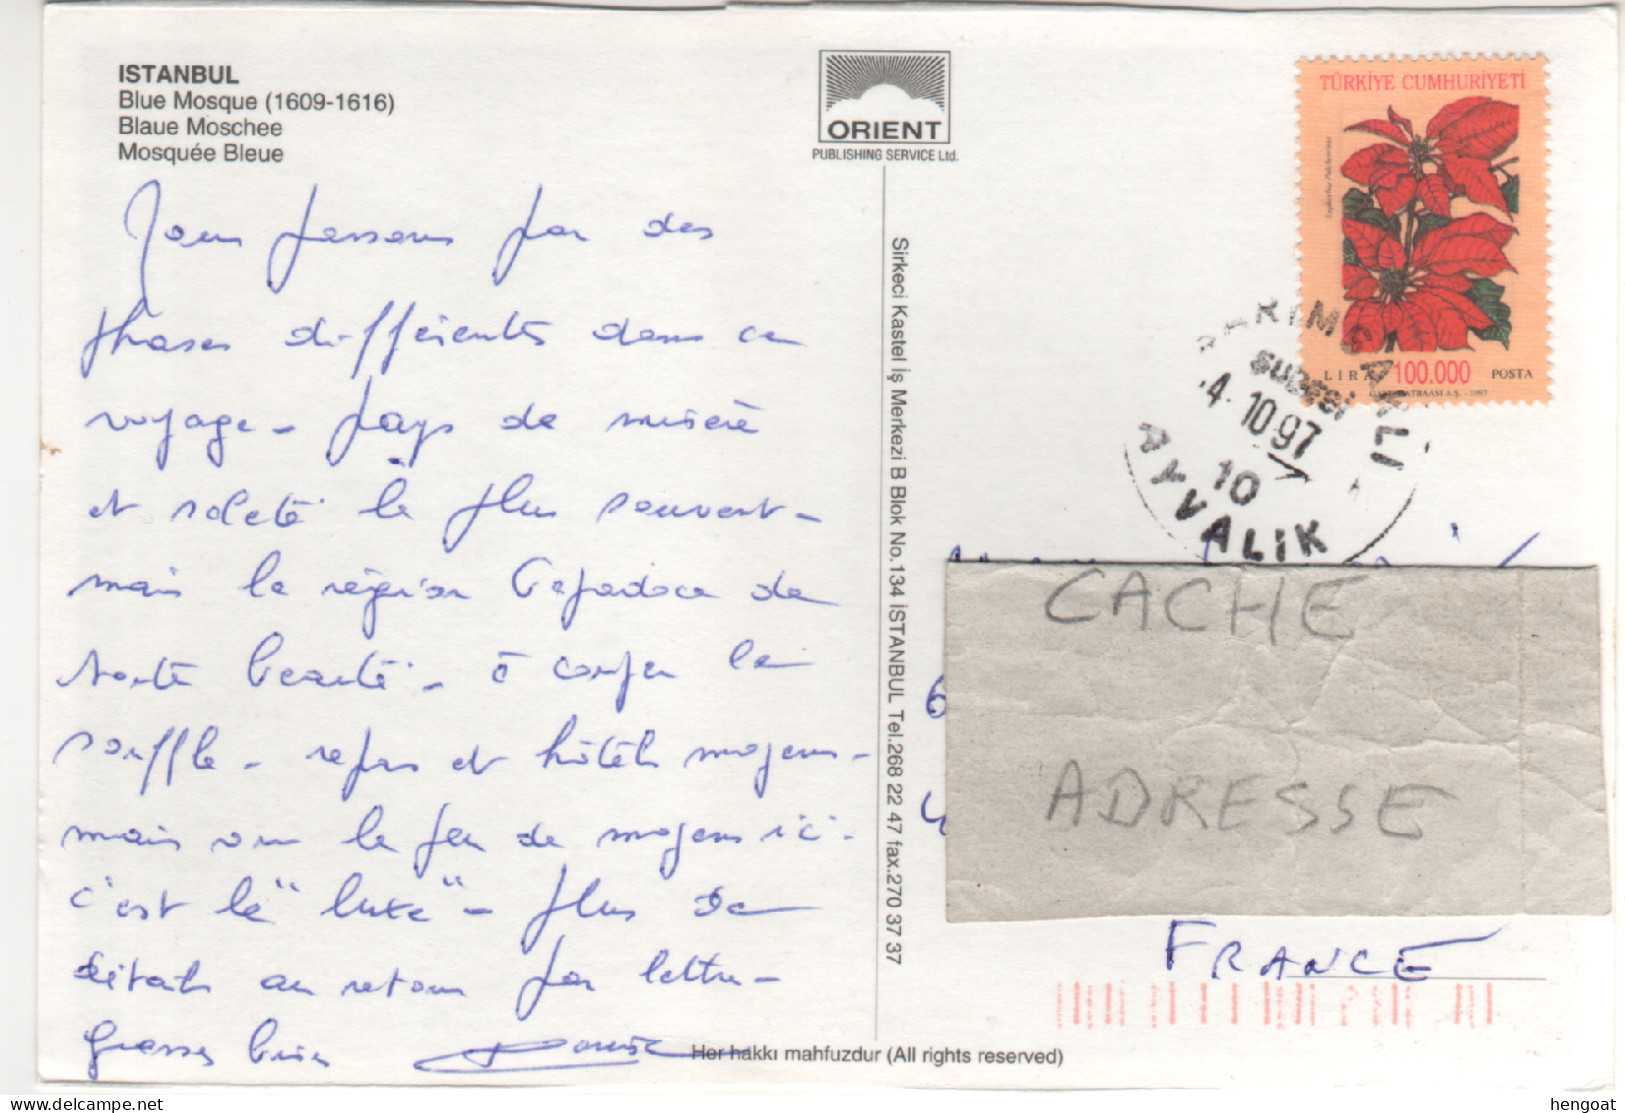 ISTANBUL
Blue Mosque (1609-1616)
Blaue Moschee
Mosquée Bleue
ORIENT
PUBLISHING SERVICE Ltd.
TÜRKİYE CUMHURİYETİ
Euphorbia Pulcherrima
LIRA 100.000 POSTA
4.10.97
10
AYVALIK
Nous passons par des
phases différentes dans ce
voyage - pays de misère
et saleté le plus souvent -
mais la région Capadoce de
toute beauté - à couper le
souffle - repas et hôtels moyens -
mais vu le peu de moyens ici -
c'est le "luxe" - plus de
détails au retour par lettre -
grosses bises
Sirkeci Kastel İş Merkezi B Blok No.134 İSTANBUL Tel.268 22 47 fax.270 37 37
CACHE
ADRESSE
FRANCE
Her hakkı mahfuzdur (All rights reserved)
hengoat